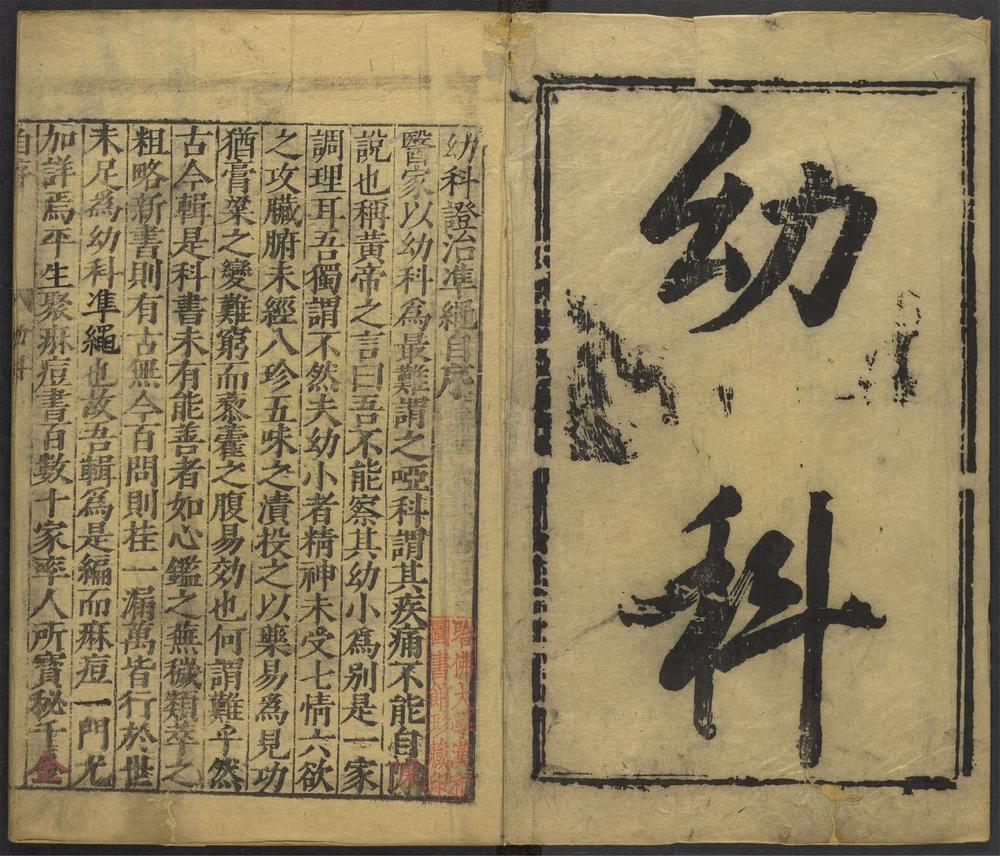 幼科
幼科證治準繩自序
醫家以幼科為最難謂之啞科謂其疾痛不能自陳
說也稱黃帝之言曰吾不能察其幼小為別是一家
調理耳吾獨謂不然夫幼小者精神未受七情六欲
之攻臟腑未經八珍五味之漬投之以藥易為見功
猶膏粱之變難窮而藜藿之腹易效也何謂難乎然
古今輯是科書未有能善者如心鑑之蕪穢類萃之
粗略新書則有古無今百問則挂一漏萬皆行於世
未足為幼科準繩也故吾輯為是編而痳痘一門尤
加詳焉平生聚痳痘書百數十家率人所寶秘千金
哈佛大學漢和
圖書館珍藏印